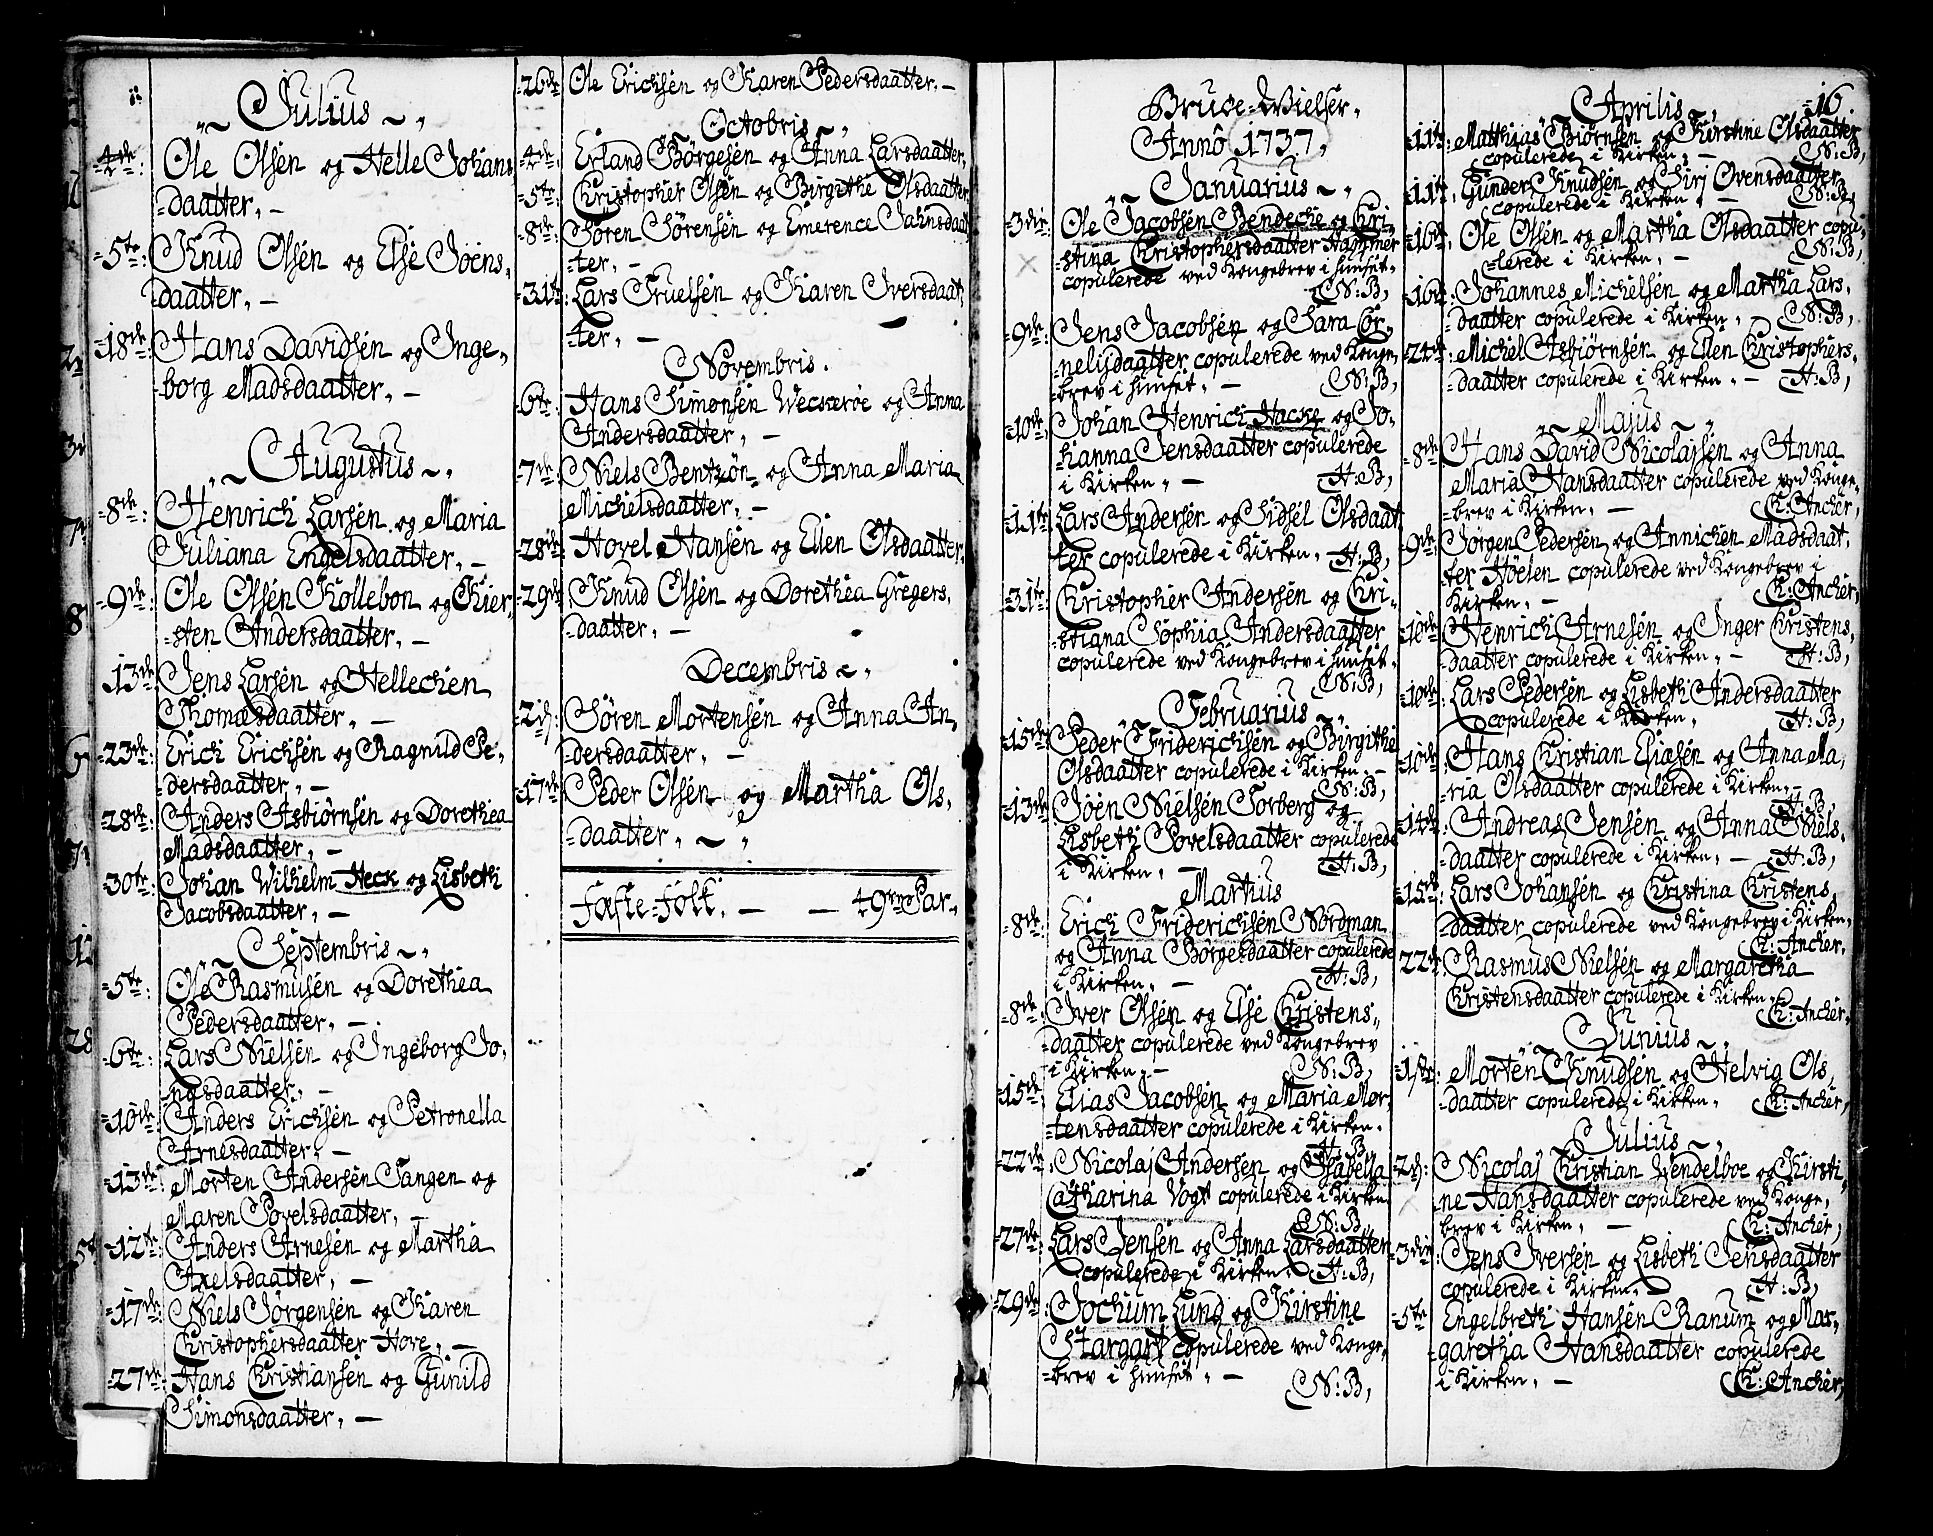 „~ Julius ~„
-4de: Ole Olsen og Helle Johans
-daatter. –
-5te: Knud Olsen og Else Joens-
daatter. –
-18de: Hans Davidsen og Inge-
-borg Madsdaatter. –
„~ Augustus ~„
-8de: Henrich Larsen og Maria
Juliana Engelsdaatter. –
-9de: Ole Olsen Kollebon og Kier
-sten Andersdaatter. –
13de Jens Larsen og Hellechen
Thomasdaatter. –
-23de: Erich Erichsen og Ragnild Pe-
dersdaatter. –
-28de: Anders Asbiørnsen og Dorethea
Madsdaatter. –
-30te: Johan Wilhelm Heck og Lisbeth
Jacobsdaatter. –
„~ Septembris ~„
-5te: Ole Rasmusen og Dorethea
Pedersdaatter. –
-6te: Lars Nielsen og Ingeborg Jo-
nasdaatter. –
-10de Anders Erichsen og Petronella
Arnesdaatter. –
-13de Morten Andersen Tangen og
Maren Povelsdaatter. –
-12te: Anders Arnesen og Martha
Axelsdaatter. –
-17de: Niels Jørgensen og Karen
Christophersdaatter Hove. –
-27de: Hans Christiansen og Gunild
Simonsdaatter. –
-26de Ole Erichsen og Karen Pedersdaatter. –
Octobris ~„
-4de: Erland Børgesen og Anna Larsdaatter.
-5te: Christopher Olsen og Birgithe Olsdaatter
-8de: Søren Sørensen og Emerence Jahnsdaat
-ter. –
-31te: Lars Truelsen og Karen Iversdaat-
ter. –
Novembris.
-6te: Hans Simonsen Wecsærøe og Anna
Andersdaatter. –
-7de: Niels Bentzøn og Anna Maria
Michelsdaatter. –
-28de Hovel Hansen og Ellen Olsdaatter.
-29de Knud Olsen og Dorethea Gregers-
-daatter. –
Decembris ~„
-2d: Søren Mortensen og Anna An-
-dersdaatter. –
-17de Peder Olsen og Martha Ols-
-daatter. – „
Fæste-Folk. – – 49 Par.
-16.
Brude-Vielser.
Anno 1737.
„~ Januarius ~„
-3die Ole Jacobsen Bendeche og Chri-
-stina Christophersdaatter Hammer
copulerede ved Kongebrev i Huuset.
N:B,
-9de: Jens Jacobsen og Sara Cor-
-nelisdaatter copulerede ved Konge-
-brev i Huuset. – N:B,
-10de: Johan Henrich Hacke og Jo-
-hanna Jensdaatter copulerede
i Kirken. – H:B,
-11te Lars Andersen og Sidsel Olsdaat
ter copulerede i Kirken. H:B,
-31te: Christopher Andersen og Chri-
-stiana Sophia Andersdaatter
copulerede ved Kongebrev i Huuset.
N:B,
Februarius
-15de Peder Friderichsen og Birgithe
Olsdaatter copulerede i Kirken. –
N:B,
-13de Joen Nielsen Torberg og
Lisbeth Povelsdaatter copulerede
i Kirken. – H:B,
Martius
-8de: Erich Friderichsen Nordman
og Anna Børgesdaatter copulerede
i Kirken. – H:B,
-8de Iver Olsen og Else Christens-
-daatter copulerede ved Kongebrev
i Kirken. – N:B,
-15de Elias Jacobsen og Maria Mor-
-tensdaatter copulerede i Kirken.
H:B,
-22de Nicolaj Andersen og Isabella
Catharina Vogt copulerede i Kirken
N:B,
-27de Lars Jensen og Anna Larsdaatter
copulerede i Kirken. H:B,
-29de Jochum Lund og Kirstine
Stargart copulerede ved Konge-
-brev i Huuset. –
N:B,
Aprilis ~„
-11te: Matthias Biørnsen og Kirstine Olsdaatter
copulerede i Kirken. – N:B,
-11te. Gunder Knudsen og Siri Ovensdaatter
copulerede i Kirken. – N:B,
-16de: Ole Olsen og Martha Olsdaatter copu-
-lerede i Kirken. – N:B,
-16de: Johannes Michelsen og Martha Lars-
daatter copulerede i Kirken. N:B,
-24de: Michel Asbiørnsen og Ellen Christophers-
daatter copulerede i Kirken. – H:B,
„~ Majus ~„
-8de Hans David Nicolajsen og Anna
Maria Hansdaatter copulerede ved Konge-
-brev i Kirken. – C: Ancher,
-9de: Jørgen Pedersen og Annichen Madsdaat-
ter Hoelen copulerede ved Kongebrev i
Kirken. – C: Ancher,
-10de Henrich Arnesen og Inger Christens-
daatter copulerede i Kirken. – H:B,
-10de Lars Pedersen og Lisbeth Andersdaatter
copulerede i Kirken. H:B,
-10de: Hans Christian Eliasen og Anna Ma-
ria Olsdaatter copulerede i Kirken. –
H:B,
-14de Andreas Jensen og Anna Niels-
-daatter copulerede i Kirken. – H:B,
-15de Lars Johansen og Christina Christens-
daatter copulerede ved Kongebrev i Kirken.
C: Ancher.
22de: Rasmus Nielsen og Margaretha
Christensdaatter copulerede i Kirken.
C: Ancher.
Junius ~„
-1ste: Morten Knudsen og Helvig Ols-
-daatter copulerede i Kirken. C: Ancher,
Julius ~„
-2d: Nicolaj Christian Wendelboe og Kirsti-
ne Hansdaatter copulerede ved Konge-
brev i Kirken. – C: Ancher,
-3die: Jens Iversen og Lisbeth Jensdaatter
copulerede i Kirken. H:B,
-5te Engelbreth Hansen Ranum og Mar-
-garetha Hansdaatter copulerede
i Kirken. – C: Ancher,